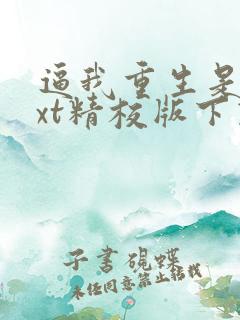 逼我重生是
xt精校版下
子书砚蝶
未经同意禁止搭我